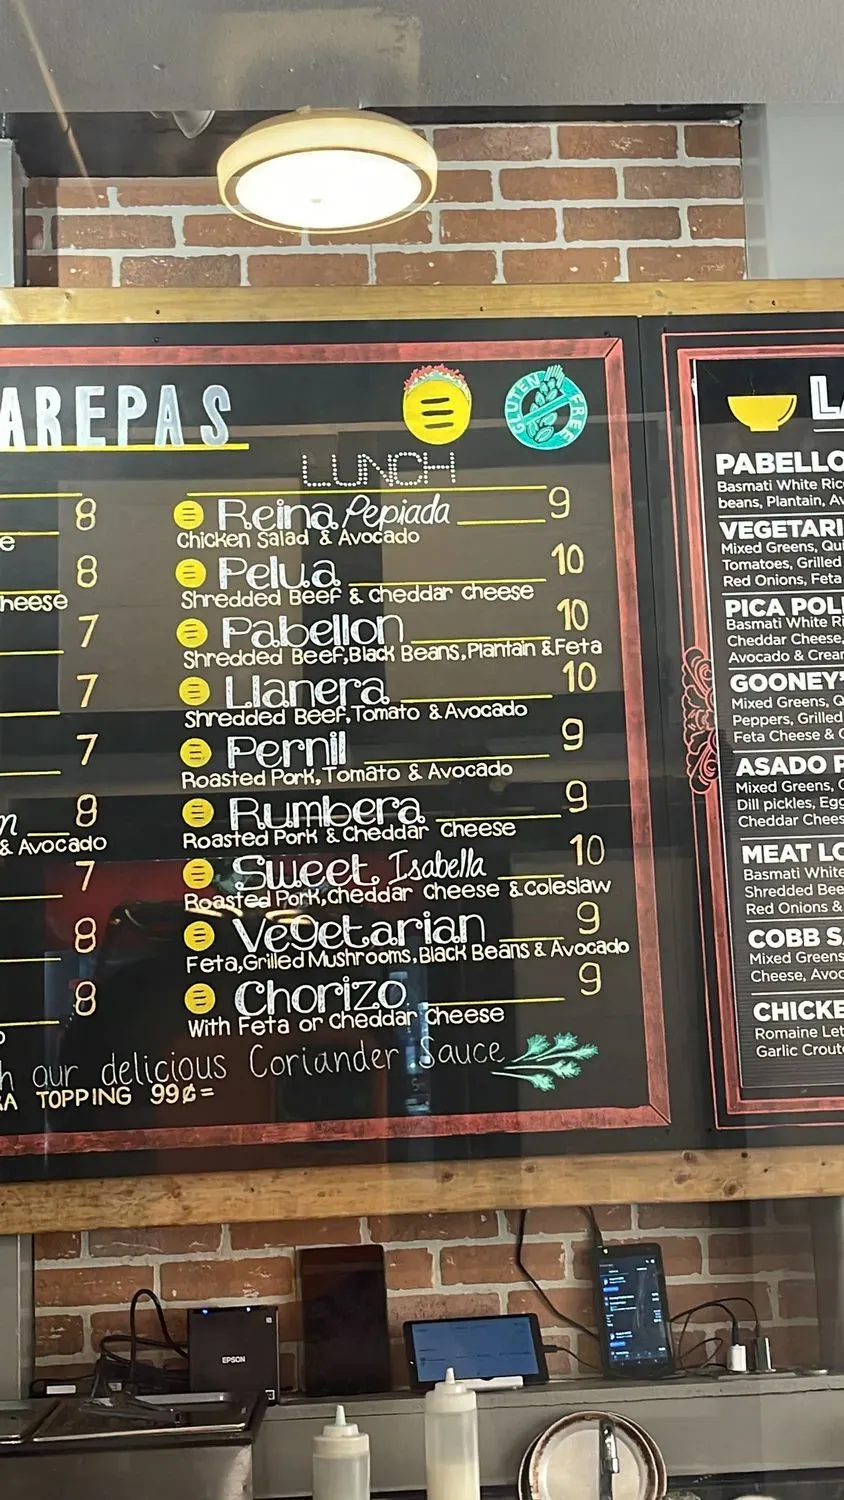 AREPAS
GLUTEN FREE
LUNCH
8
e
8
heese
7
7
7
n 8
& Avocado
7
8
8
Reina Pepiada 9
Chicken Salad & Avocado
Pelua 10
Shredded Beef & cheddar cheese
Pabellon 10
Shredded Beef, Black Beans, Plantain & Feta
Llanera 10
Shredded Beef, Tomato & Avocado
Pernil 9
Roasted Pork, Tomato & Avocado
Rumbera 9
Roasted Pork & Cheddar Cheese
Sweet Isabella 10
Roasted Pork, cheddar Cheese & Coleslaw
Vegetarian 9
Feta, Grilled Mushrooms, Black Beans & Avocado
Chorizo 9
With Feta or Cheddar Cheese
h our delicious Coriander Sauce
RA TOPPING 99¢=
PABELLO
Basmati White Ric
beans, Plantain, Av
VEGETARI
Mixed Greens, Qui
Tomatoes, Grilled
Red Onions, Feta
PICA POL
Basmati White Ri
Cheddar Cheese,
Avocado & Crea
GOONEY'
Mixed Greens, Q
Peppers, Grilled
Feta Cheese & C
ASADO P
Mixed Greens, C
Dill pickles, Egg
Cheddar Chees
MEAT LO
Basmati White
Shredded Bee
Red Onions &
COBB SA
Mixed Greens
Cheese, Avoc
CHICKE
Romaine Let
Garlic Crouto
EPSON